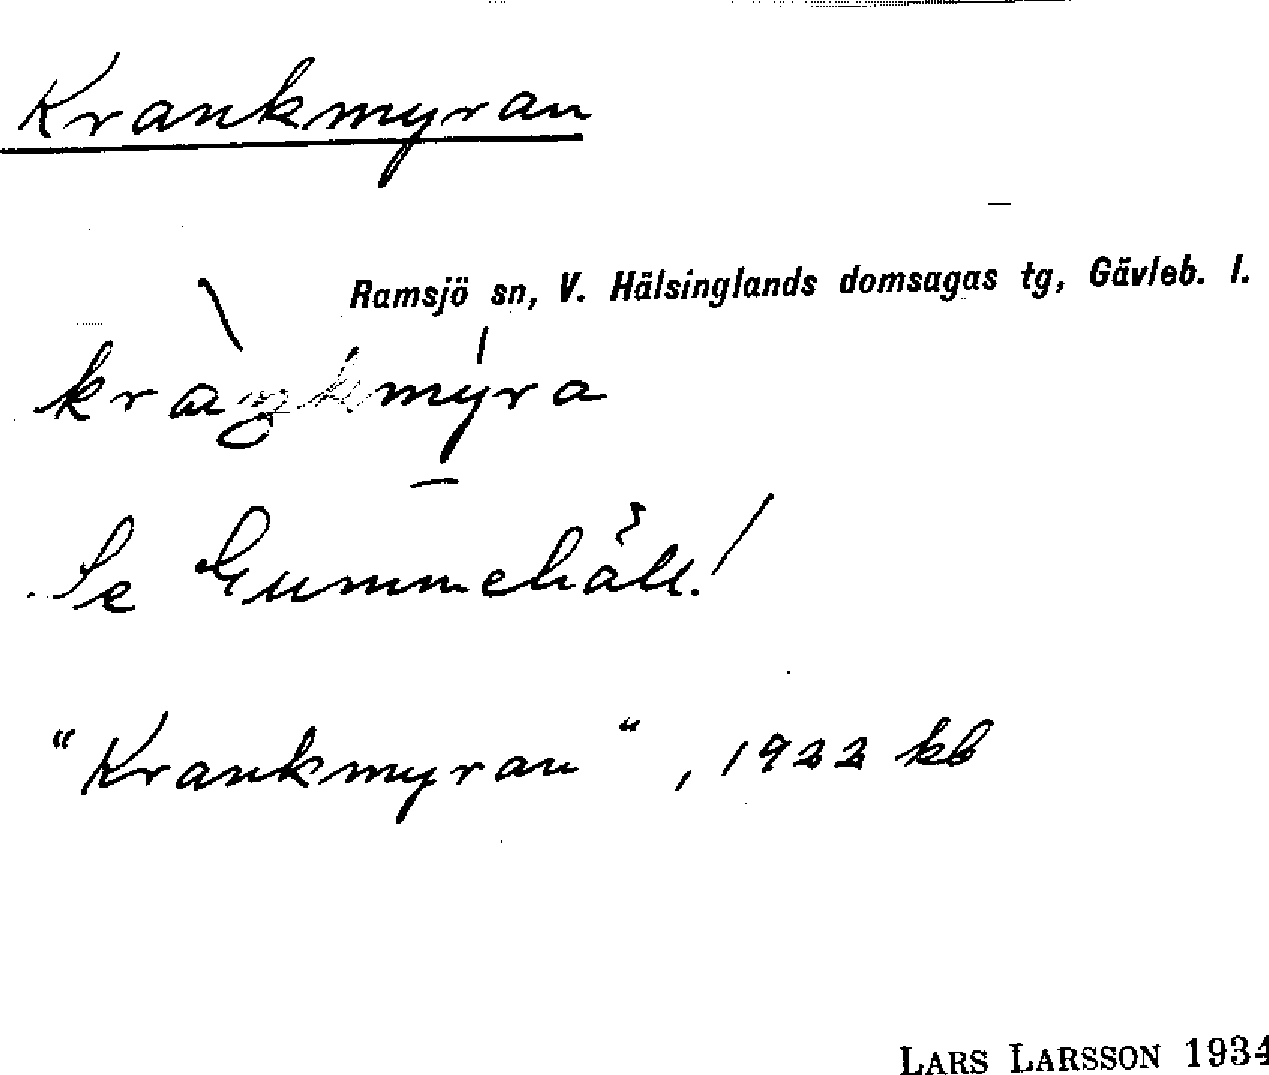 Krankmyran
Ramsjö sn, V. Hälsinglands domsagas tg, Gävleb. l.
Se Gummehåll!
"Krankmyran", 1922 kb
LARS LARSSON 1934